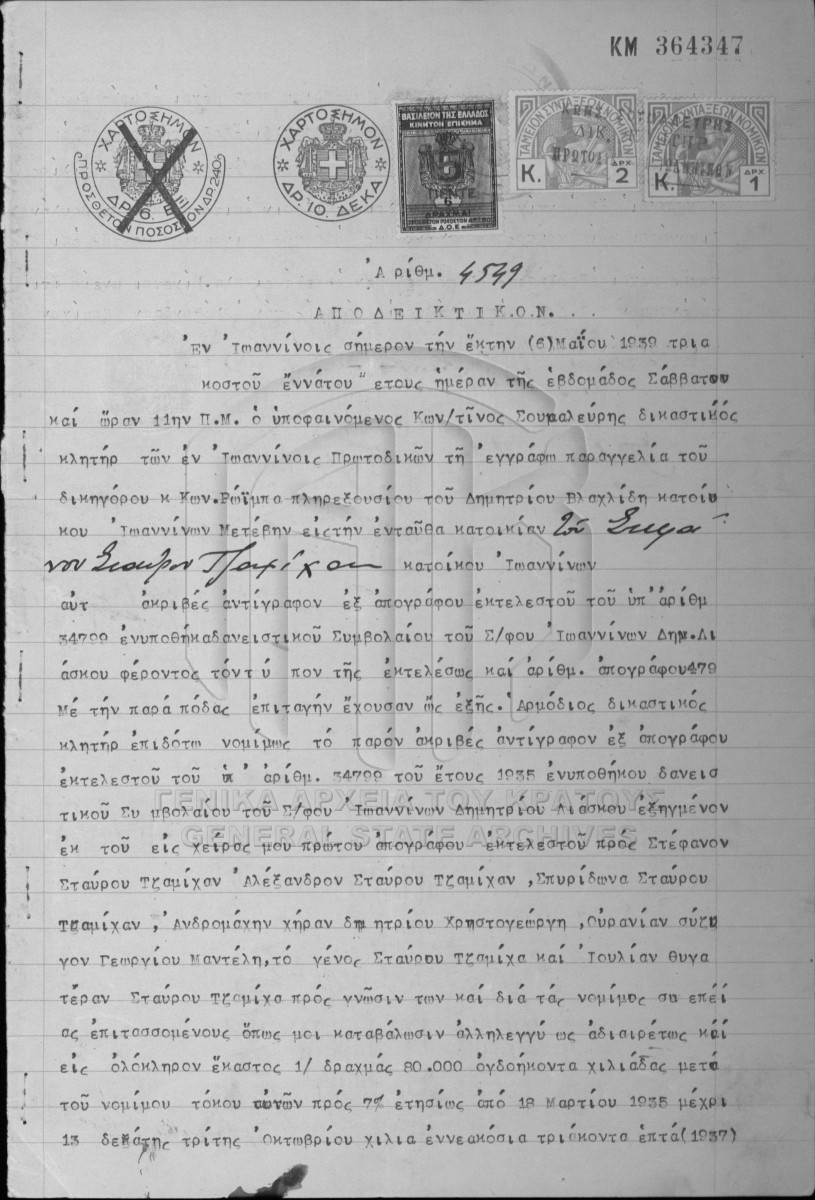 ΚΜ 364347
ΧΑΡΤΟΣΗΜΟΝ
ΔΡ. 6. ΕΞ
ΠΡΟΣΘΕΤΟΝ ΠΟΣΟΣΤΟΝ ΔΡ. 2.40
ΧΑΡΤΟΣΗΜΟΝ
ΔΡ. 10. ΔΕΚΑ
ΒΑΣΙΛΕΙΟΝ ΤΗΣ ΕΛΛΑΔΟΣ
ΚΙΝΗΤΟΝ ΕΠΙΣΗΜΑ
5
ΠΕΝΤΕ
ΔΡΑΧΜΑΙ
Δ.Ο.Ε
ΤΑΜΕΙΟΝ ΣΥΝΤΑΞΕΩΝ ΝΟΜΙΚΩΝ
Κ. ΔΡΧ. 2
ΤΑΜΕΙΟΝ ΣΥΝΤΑΞΕΩΝ ΝΟΜΙΚΩΝ
Κ. ΔΡΧ. 1
Ἀρίθμ. 4549
ΑΠΟΔΕΙΚΤΙΚ.Ο.Ν...
Ἐν Ἰωαννίνοις σήμερον τήν ἕκτην (6) Μαΐου 1939 τρια
κοστοῦ ἐννάτου" ετους ἡμέραν τῆς ἑβδομάδος Σάββατου
καί ὥραν 11ην Π.Μ. ὁ ὑποφαινόμενος Κων/τῖνος Σουμαλεύρης δικαστικός
κλητήρ τῶν ἐν Ἰωαννίνοις Πρωτοδικῶν τῆ ἐγγράφω παραγγελία τοῦ
δικηγόρου κ Κων. Ρώϊμπα πληρεξουσίου τοῦ Δημητρίου Βλαχλίδη κατοίυ
κου Ἰωαννίνων Μετέβην εἰς τήν ἐνταῦθα κατοικίαν τοῦ Στεφά
νου Σταύρου Τζαμίχαν κατοίκου Ἰωαννίνων
αὐτ ἀκριβές ἀντίγραφον ἐξ ἀπογράφου ἐκτελεστοῦ τοῦ ὑπ' ἀρίθμ
34799 ἐνυποθήκαδανειστικοῦ Συμβολαίου τοῦ Σ/φου Ἰωαννίνων Δημ. Λι
άσκου φέροντος τόντ ύ πον τῆς ἐκτελέσως καί ἀρίθμ. ἀπογράφου479
Μέ τήν παρά πόδας ἐπιταγήν ἔχουσαν ὥς ἑξῆς. Ἁρμόδιος δικαστικός
κλητήρ ἐπιδότω νομίμως τό παρόν ἀκριβές ἀντίγραφον ἐξ ἀπογράφου
ἐκτελεστοῦ τοῦ ὑπ' ἀρίθμ. 34799 τοῦ ἔτους 1935 ἐνυποθήκου δανεισ
τικοῦ Συ μβολαίου τοῦ Σ/φου Ἰωαννίνων Δημητρίου Λιάσκου ἐξηγμένον
ἐκ τοῦ εἰς χεῖρας μου πρώτου ἀπογράφου ἐκτελεστοῦ πρός Στέφανον
Σταύρου Τζαμίχαν Ἀλέξανδρον Σταύρου Τζαμίχαν , Σπυρίδωνα Σταύρου
Τζαμίχαν , Ἀνδρομάχην χήραν δημ ητρίου Χρηστογεώργη , Οὐρανίαν σύζυ
γον Γεωργίου Μαντέλη, τό γένος Σταύρου Τζαμίχα καί Ἰουλίαν θυγα
τέραν Σταύρου Τζαμίχα πρός γνῶσιν των καί διά τάς νομίμος συ επεί
ας ἐπιτασσομένους ὅπως μοι καταβάλωσιν ἀλληλεγγύ ως ἀδιαιρέτως καί
εἰς ὁλόκληρον ἕκαστος 1/ δραχμάς 80.000 ὀγδοήκοντα χιλιάδας μετά
τοῦ νομίμου τόκου αὐτῶν πρός 7% ἐτησίως ἀπό 18 Μαρτίου 1935 μέχρι
13 δεκάτης τρίτης Ὀκτωβρίου χίλια ἐννεακόσια τριάκοντα ἑπτά (1937)
ΓΕΝΙΚΑ ΑΡΧΕΙΑ ΤΟΥ ΚΡΑΤΟΥΣ
GENERAL STATE ARCHIVES